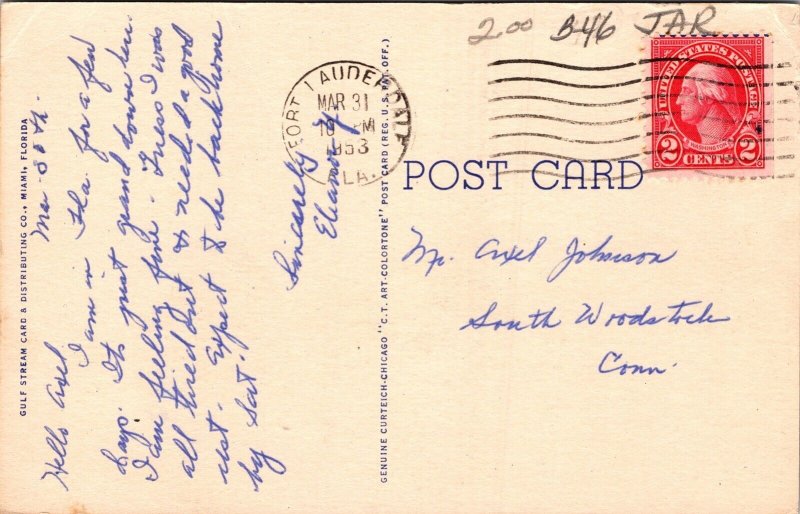 2.00 B46 JAR
UNITED STATES POSTAGE
WASHINGTON
2 CENTS 2
FORT LAUDERDALE
MAR 31
10 PM
1953
FLA.
POST CARD
Mar 30th.
Hello Axel
I am in Fla. for a few
days. Its just grand down here.
I am feeling fine. Guess I was
all tired out & needed a good
rest. Expect to be back home
by Sat.
Sincerely
Eleanor
Mr. Axel Johnson
South Woodstock
Conn.
GULF STREAM CARD & DISTRIBUTING CO., MIAMI, FLORIDA
GENUINE CURTEICH-CHICAGO "C.T. ART-COLORTONE" POST CARD (REG. U.S. PAT. OFF.)